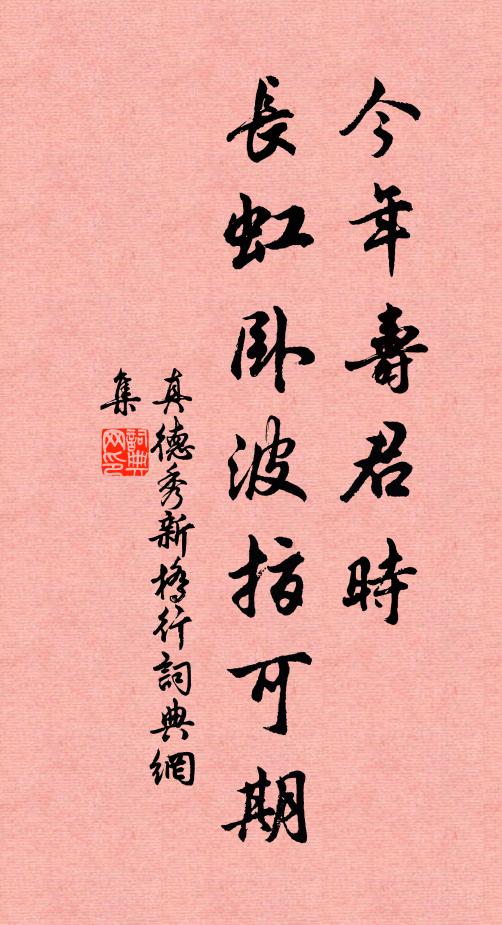 今年壽君時
長虹卧波指可期
真德秀新橋行詞典網
集
詞典
网印